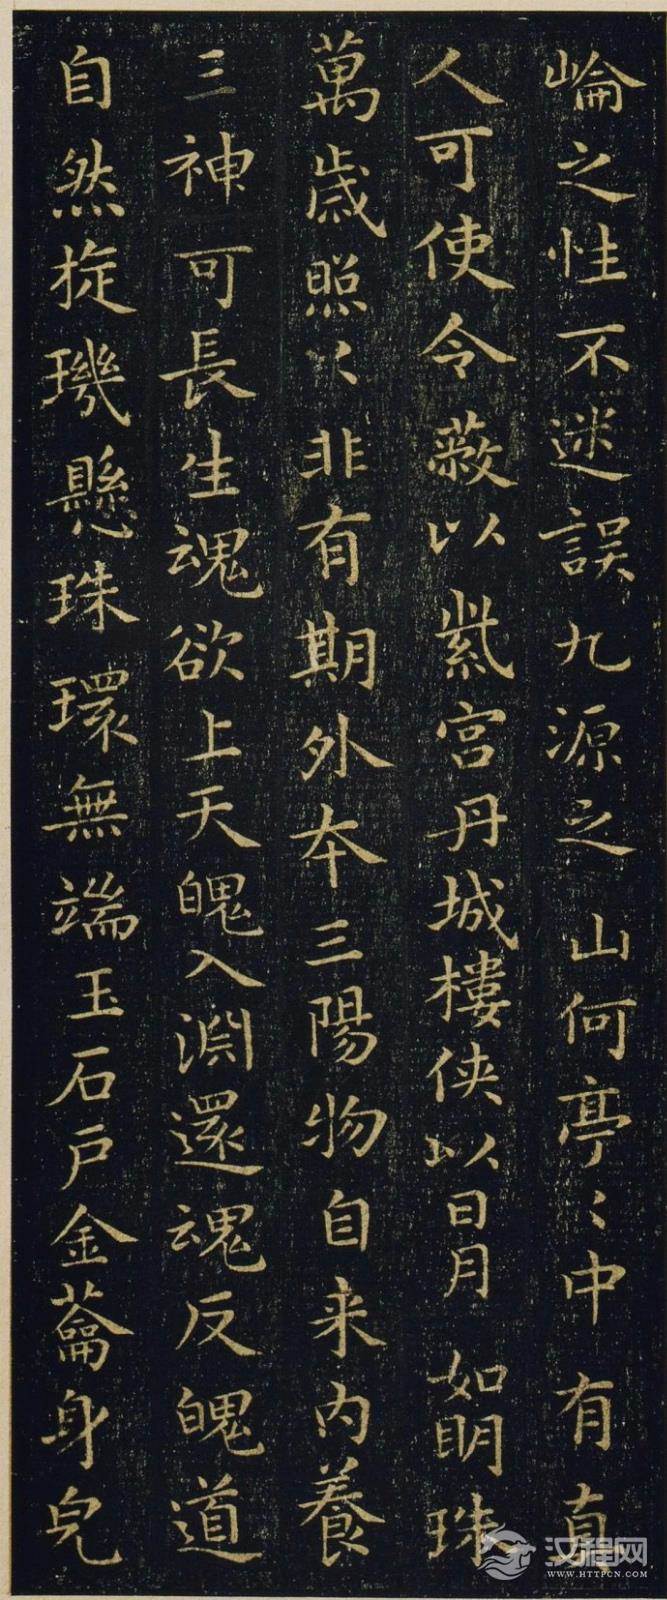 崘之性不迷誤九源之山何亭〻中有真
人可使令蔽以紫宫丹城樓侠以日月如明珠
萬歲照〻非有期外夲三陽物自来内養
三神可長生魂欲上天魄入淵還魂反魄道
自然㫌璣懸珠環無端玉石戶金蘥身皃
汉程网
WWW.HTTPCN.COM